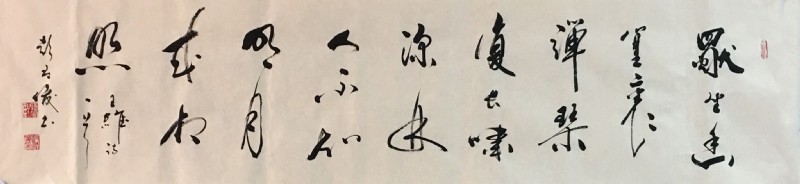 獨坐幽
篁裏
彈琴
復長嘯
深林
人不知
明月
來相
照
王維詩
一首